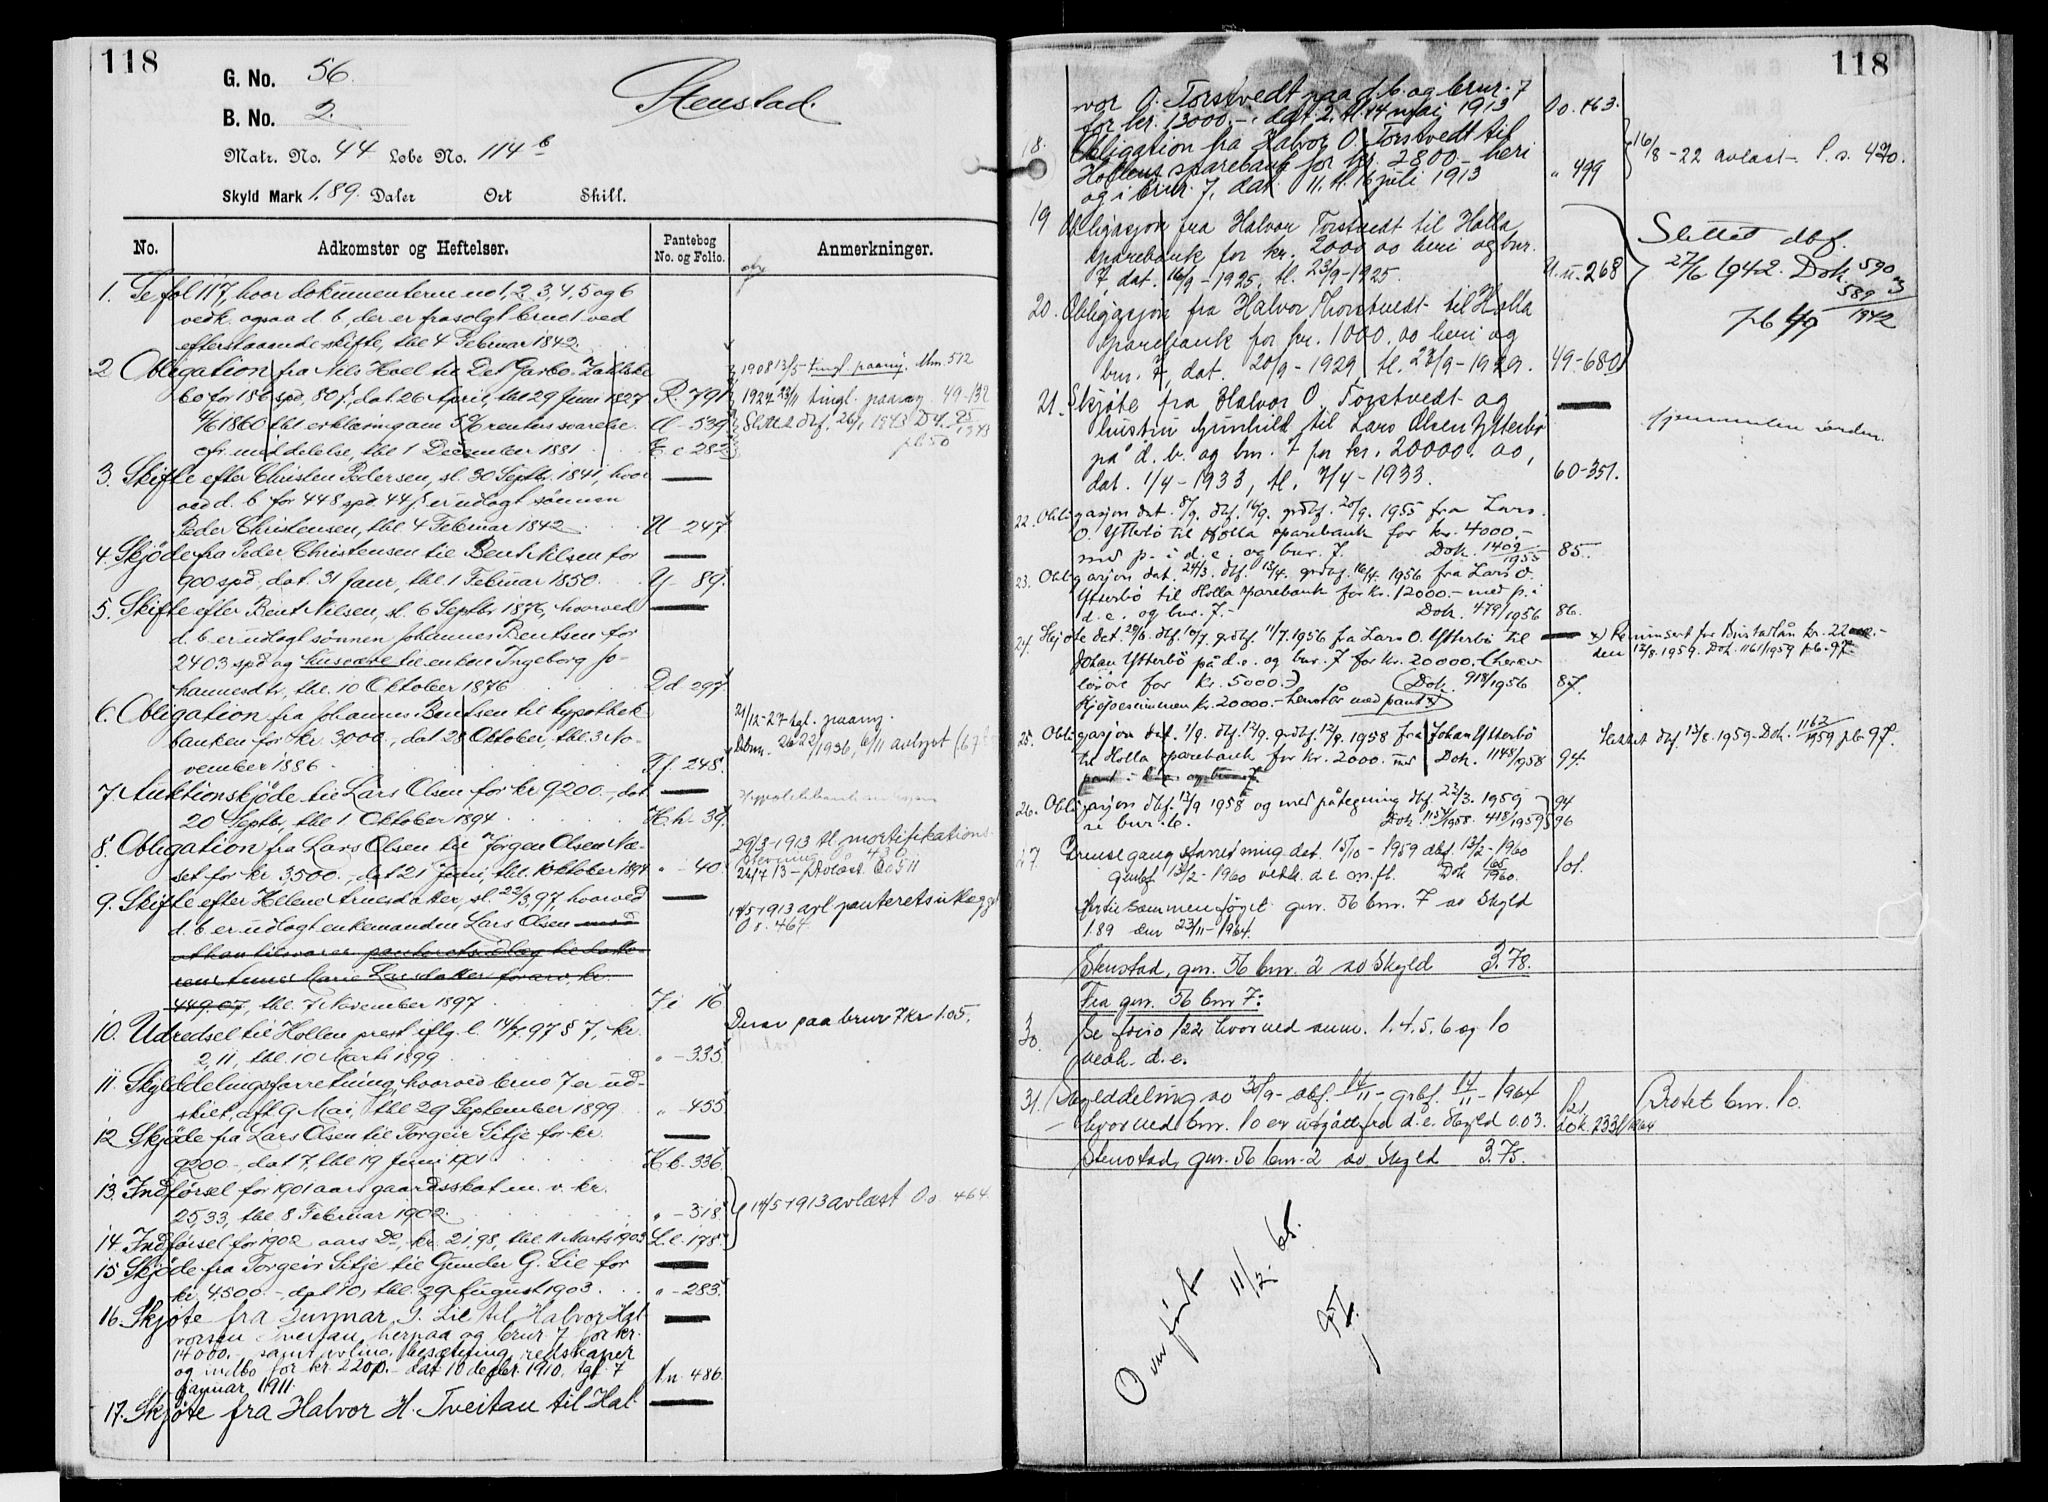 118
G. No. 56.
B. No. 2.
Matr. No. 44 Løbe No. 114 b
Skyld Mark 1.89. Daler Ort Skill.
Stenstad.
No. Adkomster og Heftelser. Pantebog No. og Folio. Anmerkninger.
1. Se fol 117, hvor dokumenterne no 1, 2, 3, 4, 5 og 6
vedk. ogsaa d. b., der er frasolgt bruot ved
efterstaaende skifte, thl 4 Februar 1842.
2 Obligation fra Nils Hoel til Det Garbo. Zahlske
bo for 186 spd, 80 s, dat 26 April, thl 29 Juni 1827 R. 791
4/6 1860 thl erklæring om 5% renters svarelse. A - 539
cfr. middelelse, thl 1 December 1881 E. e 282
1908 13/5 - tingl. paaanj. Mm 572
1927 23/11 tingl. paaanj. 49-132
Slettet dbf. 26/1 1943 D.4. 95/1943
pb 50
3. Skifte efter Christen Pedersen, sl. 30 Septbr. 1841, hvor
ved d. b for 448 spd. 44 s er udlagt sønnen
Peder Christensen, thl 4 Februar 1842 U - 247
4. Skjöde fra Peder Christensen til Bent Nilsen for
900 spd, dat. 31 Janr, thl 1 Februar 1850. Y - 89.
5. Skifte efter Bent Nilsen, sl. 6 Septbr 1876, hvorved
d. b. er udlagt sønnen Johannes Bentsen for
2403 spd og husvære til enken Ingeborg Jo-
hannesdtr, thl. 10 Oktober 1876 D d 297
6. Obligation fra Johannes Bentsen til hypothek
banken for kr 3000., dat 28 Oktober, thl. 3 No-
vember 1886 F f. 248.
21/12-27 tgl. paaanj.
7. Auktionskjöde til Lars Olsen for kr 9200.-, dat
20 Septbr, thl 1 Oktober 1894 H. h. 39.
8. Obligation fra Lars Olsen til Jørgen Olsen Næ-
set for kr 3500.-, dat 21 Juni, thl. 1 Oktober 1894 " - 40
29/3-1913 tl. mortifikations-
stevning
26/7 13 - Avløst O o 511
9. Skifte efter Helene Arnesdatter, sl. 22/3 97, hvorved
d. b. er udlagt enkemanden Lars Olsen med
at han tilsvarer panterets udlæg til datte-
ren Annes Marie Larsdatter for arv, kr.
449.07, thl. 7 November 1897 J i 16
14/5-1913 avl. panterets utlegget
O o. 464
10. Udredsel til Hollen prest iflg. l. 14/7. 97 § 7, kr.
2,11, thl. 10 Marts 1899 " - 335
Derav paa brur 7 kr 1.05.
11. Skylddelingsforretning, hvorved brno 7 er ud-
skilt, aft 9 Mai, thl 29 September 1899 " - 455
12 Skjöde fra Lars Olsen til Torgeir Sitje for kr.
9200 -, dat 7, thl 19 Juni 1901 K. k. 336
13. Indførsel for 1901 aars gaardsskat m. v. kr.
25,33, thl 8 Februar 1902. " - 318
14. Indførsel for 1902 aars Do, kr. 21,98, thl 11 Marts 1903 L. l. 178
14/5-1913 avlæst O.o. 464
15 Skjöde fra Torgeir Sitje til Gunder G. Lie for
kr 4500.- dat 10, thl. 29 August 1903. " - 283.
16. Skjøte fra Gunnar G. Lie til Halvor Hal-
vorsen Tveitan herpaa og brur 7 for kr.
14000.- samt avling, besætning, redskaper
og indbo for kr. 2200.- dat 10 decbr. 1910, tgl. 7
januar 1911. N n. 486.
17. Skjøte fra Halvor H. Tveitan til Hal-
118
vor O. Torstvedt paa d. b. og brur. 7
for kr. 13000.- dat. 2. tl. 14 mai 1913 O o. 463.
18. Obligation fra Halvor O. Torstvedt til
Hollens sparebank for kr. 2800.- heri
og i brur. 7, dat. 11. tl. 16 juli 1913 " 499
16/8-22 avlast - S. s. 420.
19 Obligasjon fra Halvor Torstvedt til Holla
sparebank for kr. 2000.00 heri og bur.
7, dat. 16/9 - 1925, tl. 23/9 - 1925. U. u - 268
20. Obligasjon fra Halvor Thorstvedt til Holla
sparebank for kr. 1000.00 heri og
bur. 7, dat. 20/9 - 1929 tl. 23/9 - 1929. 49-680
Slettet dbf.
27/6 1942. Dok. 590 og
589/1942
pb 49
21. Skjøte fra Halvor O. Torstvedt og
hustru Gunhild til Lars Olsen Ytterbö
på d. b. og bnr. 7 for kr. 20000.00,
dat. 1/4 - 1933, tl. 7/4 - 1933. 60-351.
22. Obligasjon dat. 8/9. dbf. 16/9. grdbf. 20/9. 1955 fra Lars
O. Ytterbö til Holla sparebank for kr. 4000.-
med p. i d. e. og bnr. 7. Dok. 1409/1955 85.
23. Obligasjon dat. 24/3. dbf. 13/4. grdbf. 16/4. 1956 fra Lars O.
Ytterbö til Holla sparebank for kr. 12000.- med p. i
d. e. og bnr. 7.- Dok. 479/1956 86.
24. Skjøte dat. 29/6. dbf. 10/7. grdbf. 11/7. 1956 fra Lars O. Ytterbö til
Johan Ytterbö på d. e. og bnr. 7 for kr. 20000.- (herav
løsøre for kr. 5000.-) Dok. 918/1956 87.
Kjøpesummen kr. 20000.- henstår med pant x)
den 12/8. 1959. Dok. 1161/1959 pb. 97
25. Obligasjon dat. 1/9. dbf. 12/9. grdbf. 12/9. 1958 fra Johan Ytterbö
til Holla sparebank for kr. 2000. med Dok. 1148/1958 94.
pant i d. e. og bnr. 7.
Slettet dbf 12/8. 1959. Dok. 1162/1959 pb 97.
26. Obligasjon dbf. 12/9 1958 og med påtegning dbf. 23/3. 1959 94
se bnr. 6. Dok. 1154/1958. 418/1959 96
27 Grensegangsforretning dat. 15/10 - 1959 dbf. 12/2 - 1960
Grdbf. 12/2 - 1960 vedk. d. e. m. fl. Dok 165/1960. 101.
Hertil sammenføyet gnr. 56 bnr. 7 av skyld
1.89 den 23/11-1964.
Stenstad, gnr. 56 bnr. 2 av skyld 3.78.
Fra gnr. 56 bnr 7:
30. Se folio 122 hvorved anm. 1. 4. 5. 6 og 10
vedk. d. e.
31. Skylddeling av 30/9 - dbf. 14/11 - grbf. 14/11 - 1964
hvorved bnr. 10 er utgått fra d. e. skyld 0.03. Dok. 2331/1964
Brotet bnr. 10.
Stenstad, gnr. 56 bnr. 2 av skyld 3.75.
Overført 11/2. 65.